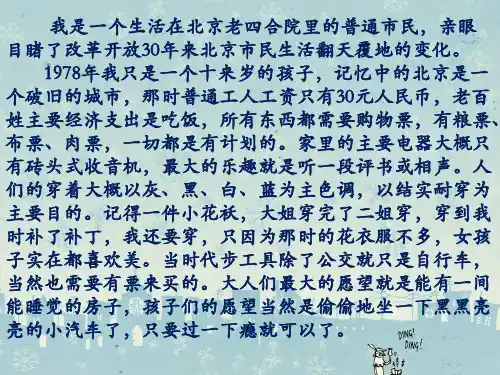 我是一个生活在北京老四合院里的普通市民，亲眼
目睹了改革开放30年来北京市民生活翻天覆地的变化。
1978年我只是一个十来岁的孩子，记忆中的北京是一
个破旧的城市，那时普通工人工资只有30元人民币，老百
姓主要经济支出是吃饭，所有东西都需要购物票，有粮票、
布票、肉票，一切都是有计划的。家里的主要电器大概只
有砖头式收音机，最大的乐趣就是听一段评书或相声。人
们的穿着大概以灰、黑、白、蓝为主色调，以结实耐穿为
主要目的。记得一件小花袄，大姐穿完了二姐穿，穿到我
时补了补丁，我还要穿，只因为那时的花衣服不多，女孩
子实在都喜欢美。当时代步工具除了公交就只是自行车，
当然也需要有票来买的。大人们最大的愿望就是能有一间
能睡觉的房子，孩子们的愿望当然是偷偷地坐一下黑黑亮
亮的小汽车了，只要过一下瘾就可以了。
DING!
DING!